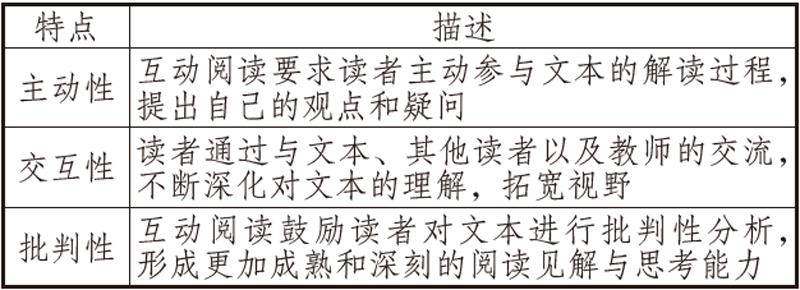 特点 描述
主动性 互动阅读要求读者主动参与文本的解读过程，
提出自己的观点和疑问
交互性 读者通过与文本、其他读者以及教师的交流，
不断深化对文本的理解，拓宽视野
批判性 互动阅读鼓励读者对文本进行批判性分析，
形成更加成熟和深刻的阅读见解与思考能力